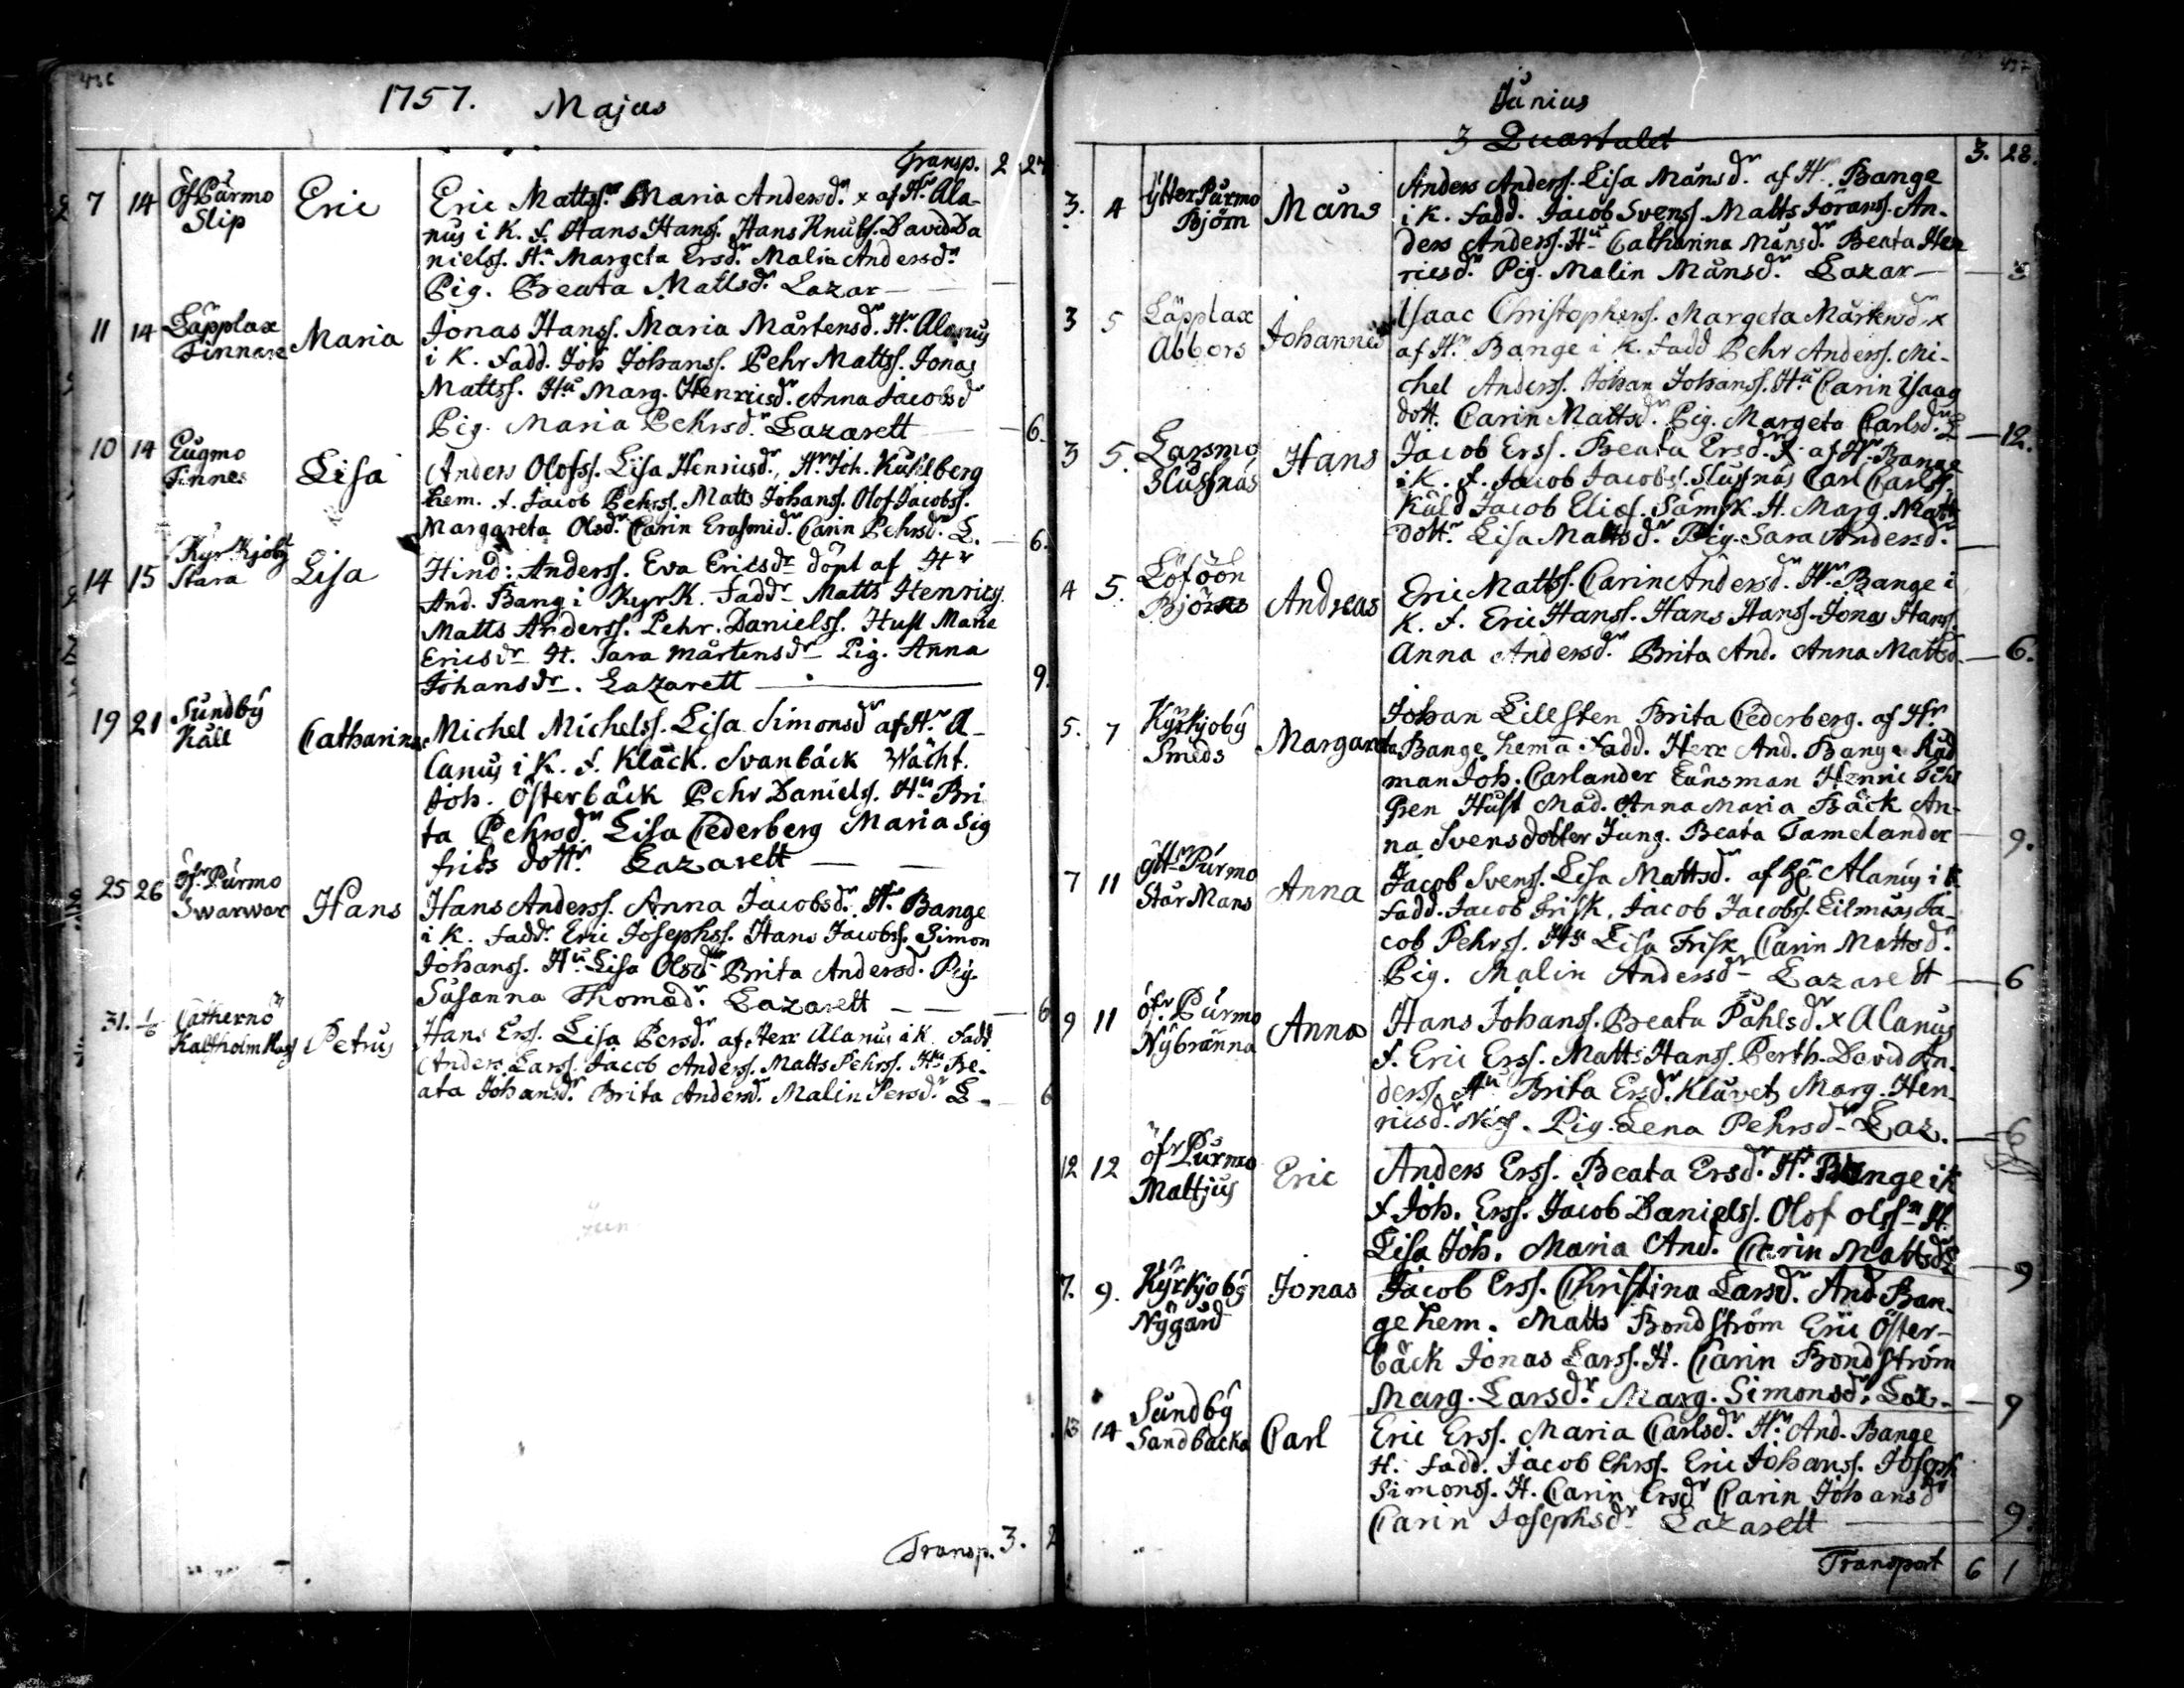 436
1757. Majus
Transp. 2
7 14 Öf Purmo Slip Eric Eric Matts. Maria Andersdr x af Hr Ala-
nus i K. f. Hans Hans. Hans Knuts. David Da
nielss. Hu Margeta Ersdr Malin Andersdr
Pig. Beata Mattsdr Lazar —
11 14 Läpplax Finnare Maria Jonas Hanss. Maria Mårtensdr Hr Alanus
i K. Fadd. Joh Johanss. Pehr Mattss. Jonas
Mattss. Hu Marg. Henricsdr Anna Jacobsd
Pig. Maria Pehrsdr Lazarett — 6.
10 14 Eugmo Finnes Lisa Anders Olofss. Lisa Henricsdr, Hr Joh. Kuhlberg
hem. f. Jacob Pehrss. Matts Johanss. Olof Jacobss.
Margareta Olsdr Carin Erasmidr Carin Pehrsdr L. — 6.
14 15 Kyrkjoby Stara Lisa Hind: Anderss. Eva Ericsdr döpt af Hr
And. Bang i KyrK. Faddr Matts Henrics.
Matts Anderss. Pehr. Danielss. Hust Maria
Ericsdr H. Sara Mårtensdr Pig. Anna
Johansdr. Lazarett — 9.
19 21 Sundby Käll Catharina Michel Michelss. Lisa Simonsdr af Hr A-
lanus i K. f. Klåck. Svanbäck Wächt.
Joh. Österbäck Pehr Daniels. Hu Bri
ta Pehrsdr Lisa Cederberg Maria Sig
frids dottr Lazarett —
25 26 Öfr Purmo Swarwar Hans Hans Anderss. Anna Jacobsdr Hr Bange
i K. Faddr Eric Josephss. Hans Jacobss. Simon
Johanss. Hu Lisa Olsdr Brita Andersd. Pig.
Susanna Thomasdr Lazarett — 6
31. 1/6 Catternö Kalfholm Petrus Hans Ers. Lisa Persdr af Herr Alanus i K. Fadd.
Anders Larss. Jacob Anders. Matts Pehrss. Hu Be-
ata Johansdr Brita Andersdr Malin Persdr L — 6
Transp. 3.
437
Junius
3 Quartalet
3. 28.
3. 4 Ytter Purmo Björn Måns Anders Anders. Lisa Månsdr af Hr Bange
i K. Fadd. Jacob Svens. Matts Jörans. An-
ders Anderss. Hu Catharina Månsdr Beata Hen
ricsdr Pig. Malin Månsdr Lazar —
3 5 Läpplax Abbors Johannes Isaac Christophers. Margeta Mårtensdr x
af Hr Bange i K. Fadd Pehr Anders. Mi-
chel Anders. Johan Johanss. Hu Carin Isaacs
dott. Carin Mattsdr Pig. Margeta Carlsdr L — 12.
3 5. Larsmo Slussnäs Hans Jacob Ers. Beata Ersdr x af Hr Bange
i K. f. Jacob Jacobs. Slussnäs Carl Carls.
Käld Jacob Elias. Sämsk. H. Marg. Matts
dottr Lisa Mattsdr Pig. Sara Andersdr —
4 5. Löföön Björns Andreas Eric Matts. Carin Andersdr Hr Bange i
K. f. Eric Hanss. Hans Hanss. Jonas Hanss.
Anna Andersdr Brita And. Anna Mattsd — 6.
5. 7 Kyrkjoby Smeds Margareta Johan Lillsten Brita Cederberg. af Hr
Bange hema Fadd. Herr And. Bange Råd
man Joh. Carlander Länsman Henric Fehl
gren Hust Mad. Anna Maria Bäck An-
na Svensdotter Jung. Beata Tamelander 9.
7 11 Yttr Purmo Stor Mans Anna Jacob Svens. Lisa Mattsdr af H. Alanus i K
Fadd. Jacob Frisk. Jacob Jacobss. Lilmåns Ja-
cob Pehrss. Hu Lisa Frisk Carin Mattsdr
Pig. Malin Andersdr Lazarett — 6
9 11 Öfr Purmo Nybränna Anna Hans Johans. Beata Påhlsdr x Alanus
f. Eric Erss. Matts Hanss. Perth. David An-
derss. Hu Brita Ersdr Kluvets Marg. Hen-
ricsdr Nis. Pig. Lena Pehrsdr Laz. — 6
12 12 Öfr Purmo Mattjus Eric Anders Erss. Beata Ersdr Hr Bange i K
f. Joh. Erss. Jacob Danielss. Olof Olssn H.
Lisa Joh. Maria And. Carin Mattsdr L — 9
7. 9. Kyrkjoby Nygård Jonas Jacob Erss. Christina Larsdr And. Ban-
ge hem. Matts Bondström Eric Öster-
bäck Jonas Larss. H. Carin Bondström
Marg. Larsdr Marg. Simonsdr Laz. — 9
13 14 Sundby Sandbacka Carl Eric Erss. Maria Carlsdr Hr And. Bange
H. Fadd. Jacob Ehrss. Eric Johanss. Joseph
Simonss. H. Carin Ersdr Carin Johansdr
Carin Josephsdr Lazarett — 9.
Transport 6 1